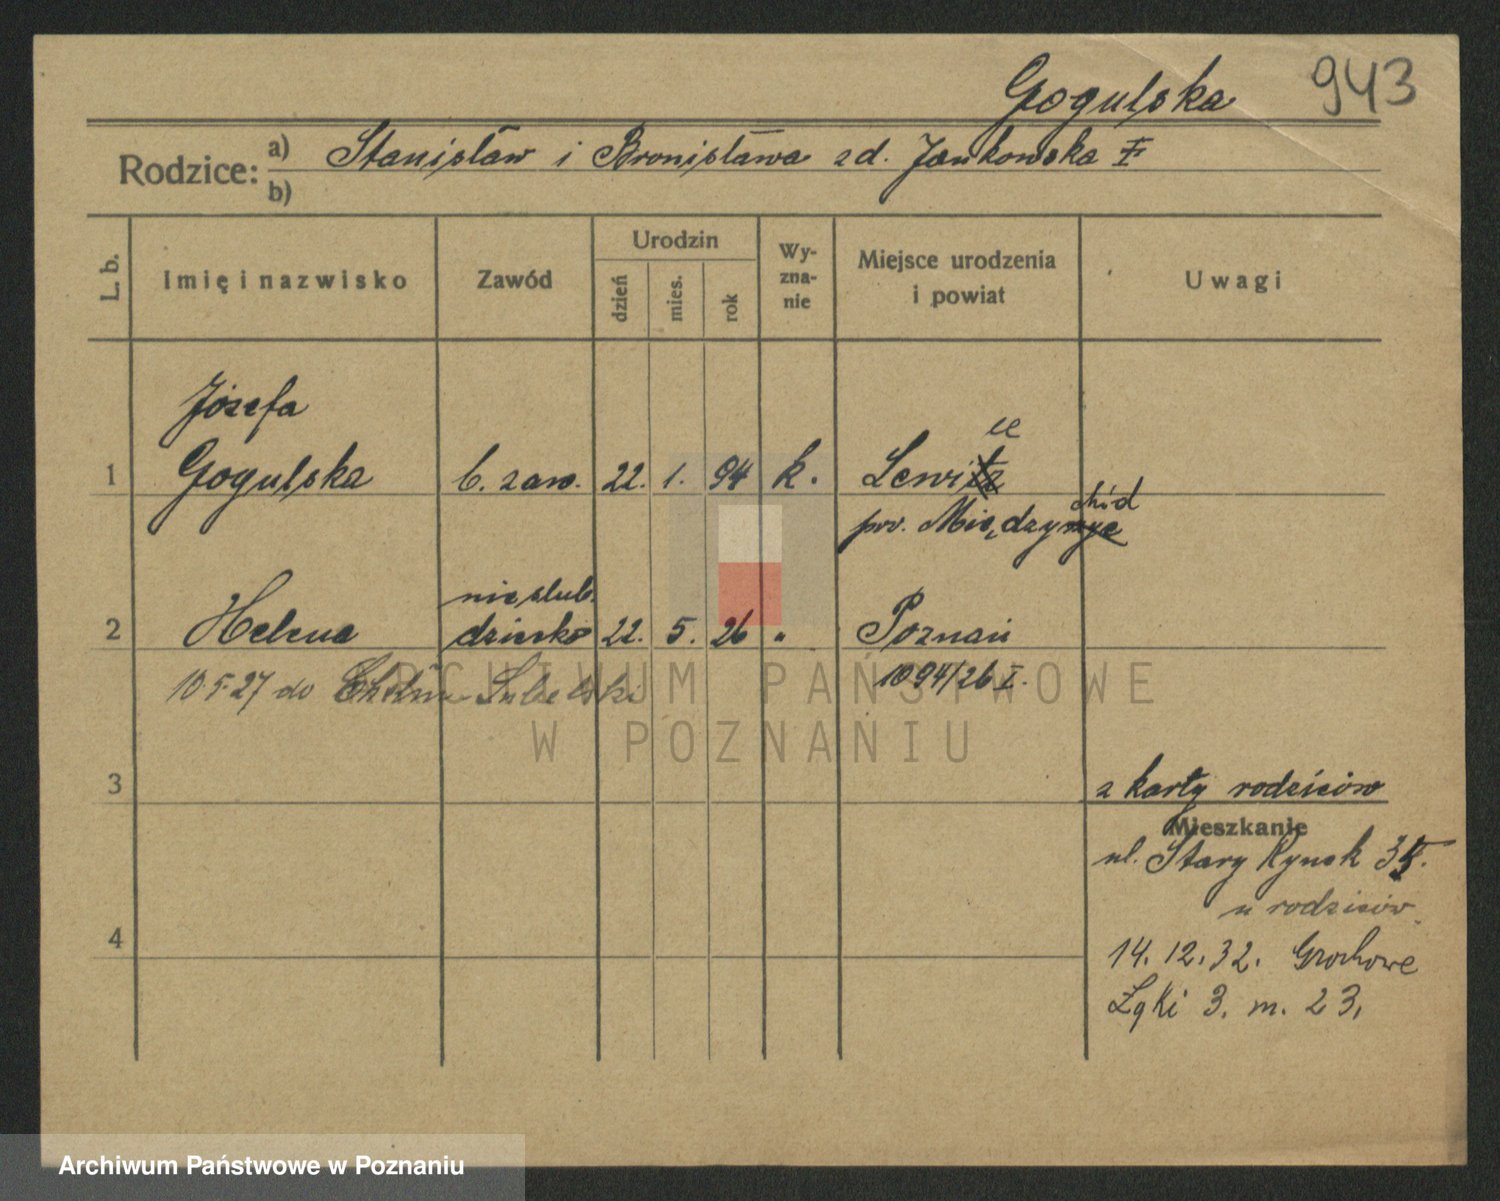 Gogulska 943
Rodzice: a) Stanisław i Bronisława zd. Jankowska
b)
L. b. Imię i nazwisko Zawód Urodzin dzień mies. rok Wyznanie Miejsce urodzenia i powiat Uwagi
Józefa
1 Gogulska b. zaw. 22. 1. 94 k. Lewice
pow. Międzychód
nieślub.
2 Helena dziecko 22. 5. 26 " Poznań
10.5.27 do Chełma Lubelski 1094/26 I.
ARCHIWUM PAŃSTWOWE
W POZNANIU
3 z karty rodziców
Mieszkanie
ul. Stary Rynek
u rodziców
4 14.12.32. Grochowe
Łąki 3. m. 23.
Archiwum Państwowe w Poznaniu